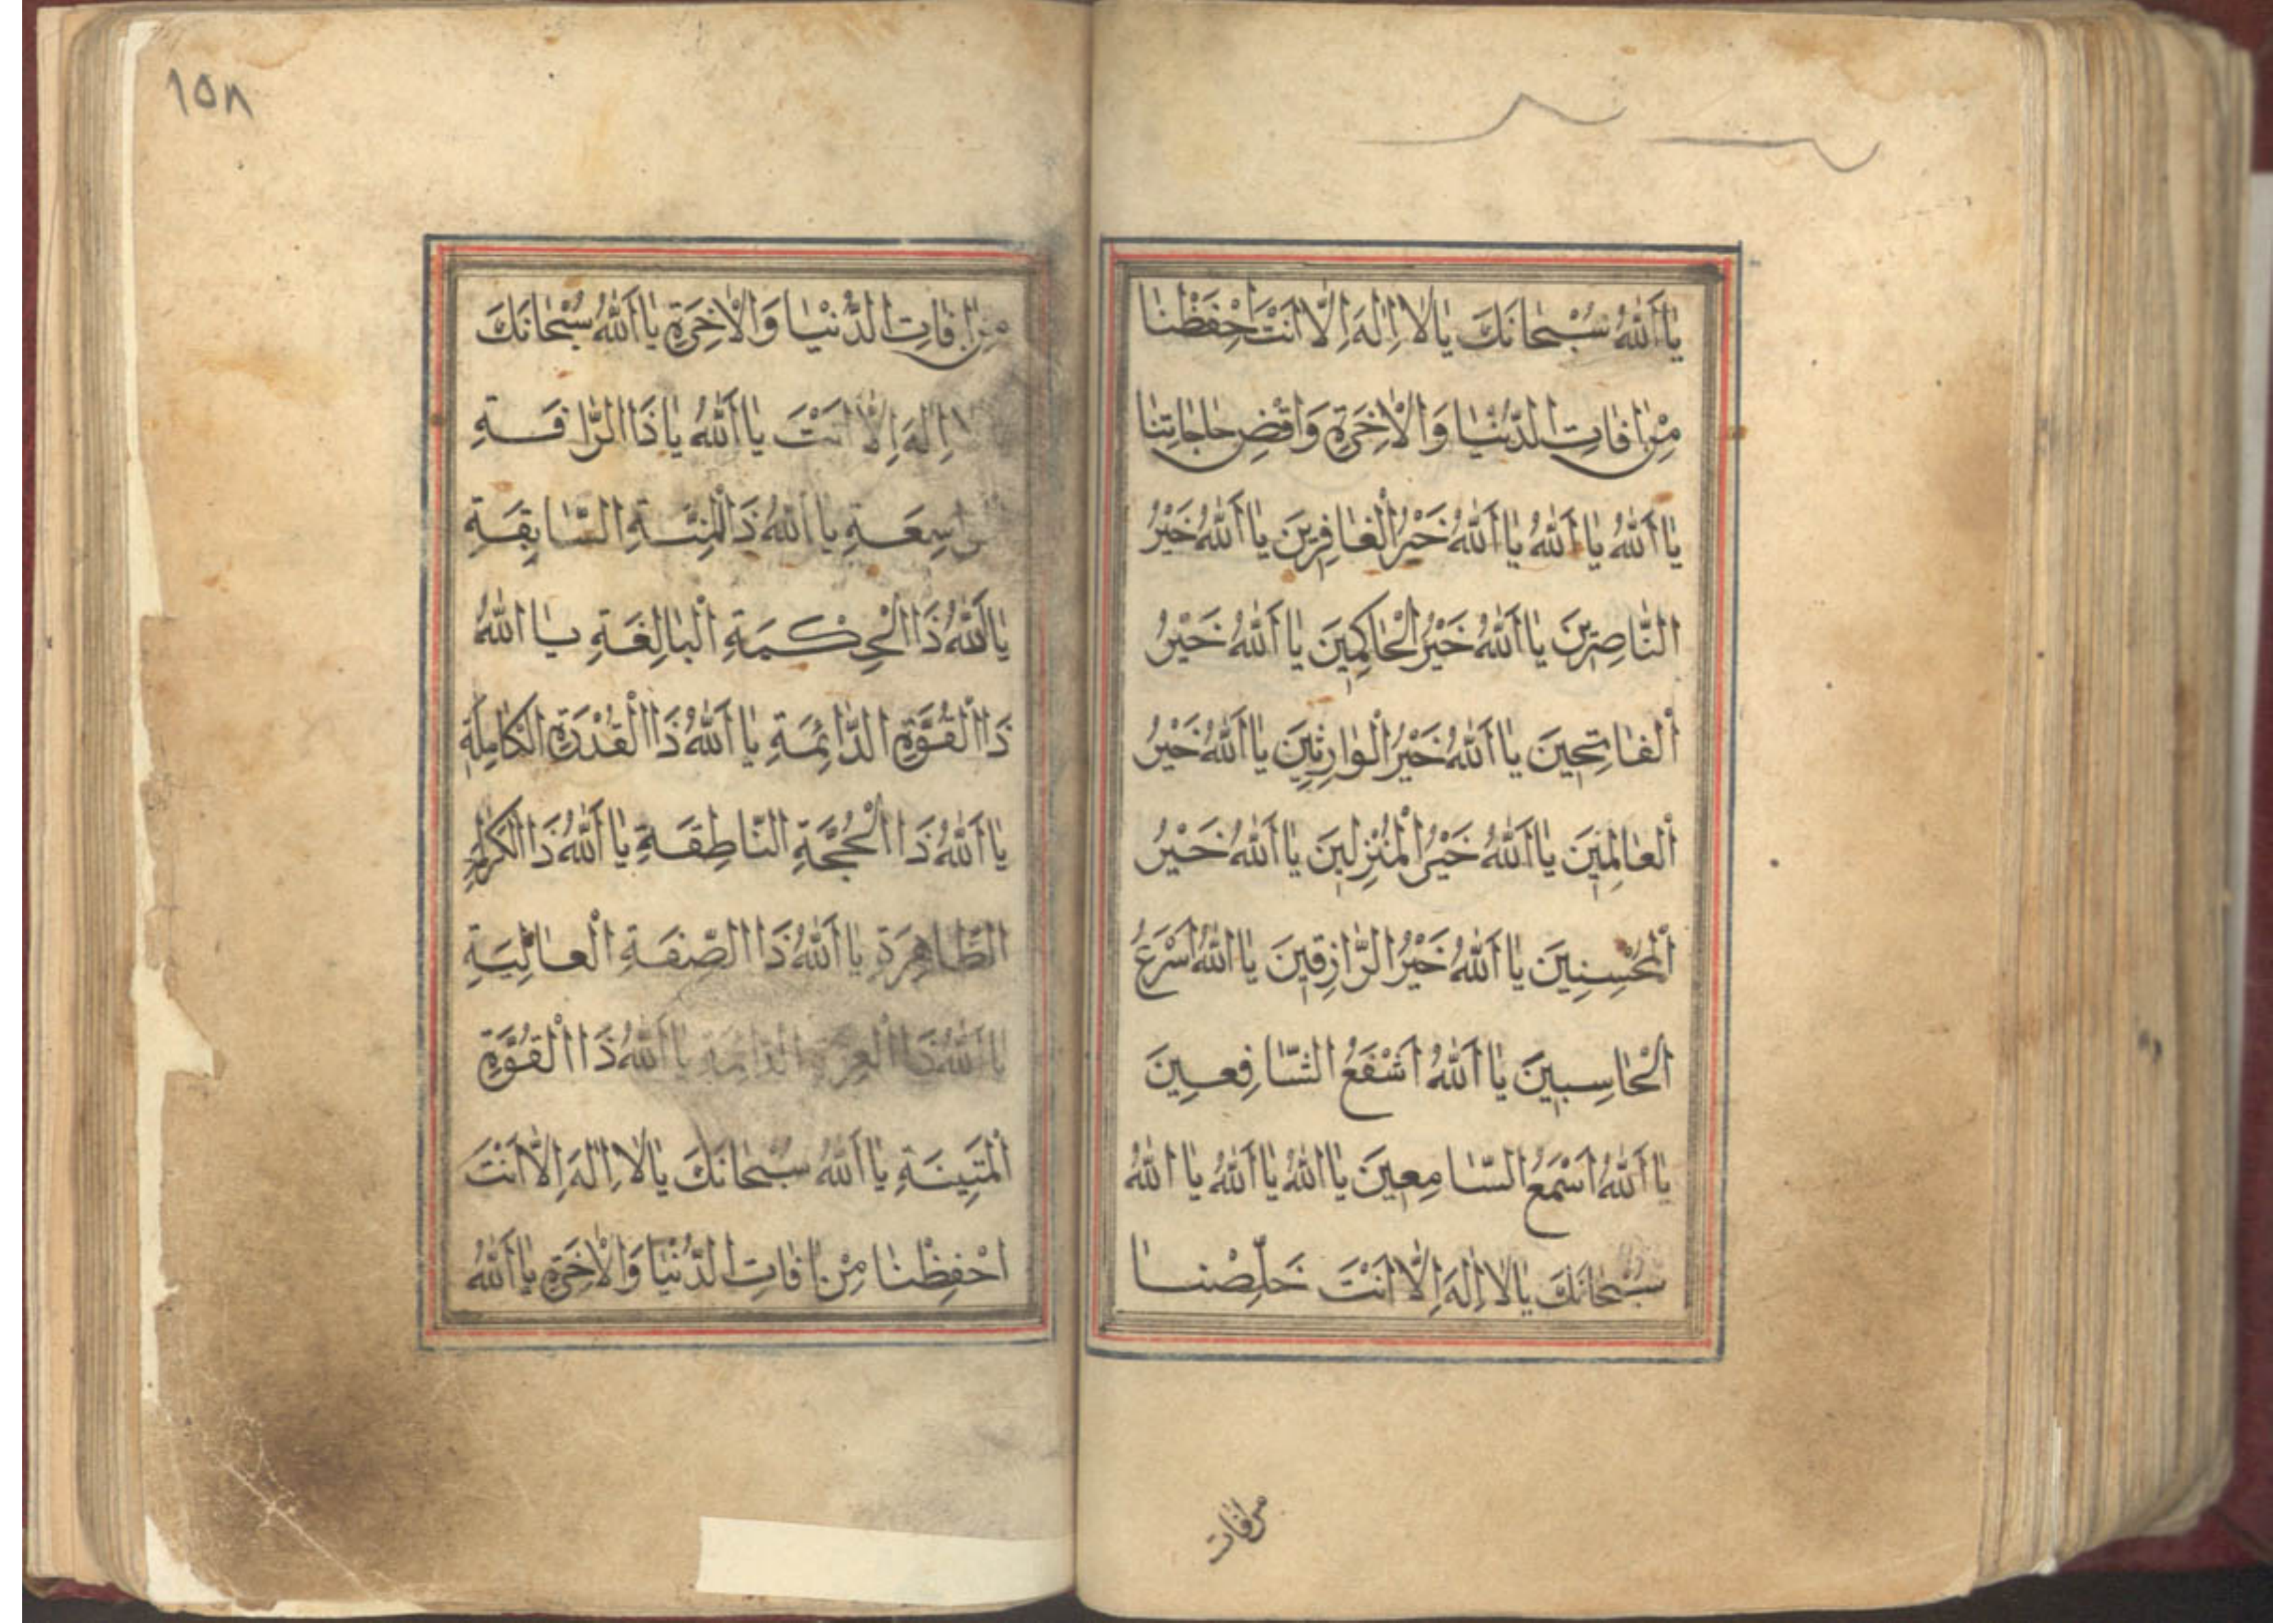 يَا اَللّٰهُ سُبْحَانَكَ يَا لَا اِلٰهَ اِلَّا اَنْتَ اِحْفَظْنَا
مِنْ اٰفَاتِ الدُّنْيَا وَالْاٰخِرَةِ وَاقْضِ حَاجَاتِنَا
يَا اَللّٰهُ يَا اَللّٰهُ يَا اَللّٰهُ خَيْرُ الْغَافِرِينَ يَا اَللّٰهُ خَيْرُ
النَّاصِرِينَ يَا اَللّٰهُ خَيْرُ الْحَاكِمِينَ يَا اَللّٰهُ خَيْرُ
الْفَاتِحِينَ يَا اَللّٰهُ خَيْرُ الْوَارِثِينَ يَا اَللّٰهُ خَيْرُ
الْعَالِمِينَ يَا اَللّٰهُ خَيْرُ الْمُنْزِلِينَ يَا اَللّٰهُ خَيْرُ
الْمُحْسِنِينَ يَا اَللّٰهُ خَيْرُ الرَّازِقِينَ يَا اَللّٰهُ اَسْرَعُ
الْحَاسِبِينَ يَا اَللّٰهُ اَشْفَعُ الشَّافِعِينَ
يَا اَللّٰهُ اَسْمَعُ السَّامِعِينَ يَا اَللّٰهُ يَا اَللّٰهُ يَا اللّٰهُ
سُبْحَانَكَ يَا لَا اِلٰهَ اِلَّا اَنْتَ خَلِّصْنَا
من افات
١٥٨
مِنْ اٰفَاتِ الدُّنْيَا وَالْاٰخِرَةِ يَا اَللّٰهُ سُبْحَانَكَ
اِلٰهَ اِلَّا اَنْتَ يَا اَللّٰهُ يَا ذَا الرَّافَةِ
يَا اَللّٰهُ ذَا الْمِنَّةِ السَّابِقَةِ
يَا اَللّٰهُ ذَا الْحِكْمَةِ الْبَالِغَةِ يَا اللّٰهُ
ذَا الْقُوَّةِ الدَّائِمَةِ يَا اَللّٰهُ ذَا الْقُدْرَةِ الْكَامِلَةِ
يَا اَللّٰهُ ذَا الْحُجَّةِ النَّاطِقَةِ يَا اَللّٰهُ ذَا
الظَّاهِرَةِ يَا اَللّٰهُ ذَا الصِّفَةِ الْعَالِيَةِ
يَا اَللّٰهُ ذَا الْعِزَّةِ الدَّائِمَةِ يَا اَللّٰهُ ذَا الْقُوَّةِ
الْمَتِينَةِ يَا اَللّٰهُ سُبْحَانَكَ يَا لَا اِلٰهَ اِلَّا اَنْتَ
احْفِظْنَا مِنْ اٰفَاتِ الدُّنْيَا وَالْاٰخِرَةِ يَا اَللّٰهُ